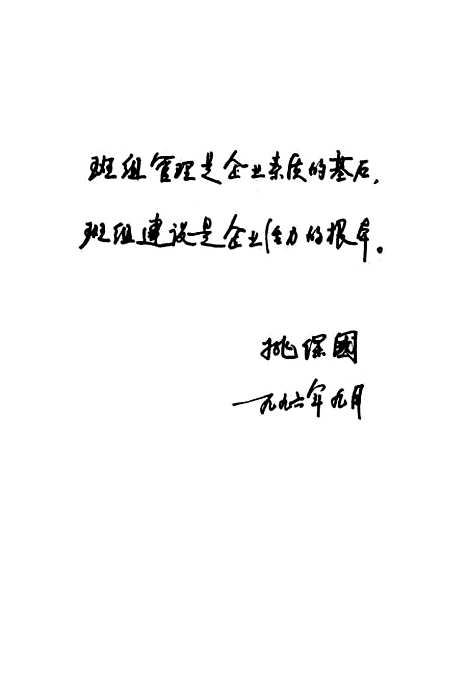 班组管理是企业素质的基石，
班组建设是企业活力的根本。
姚保国
一九九六年九月